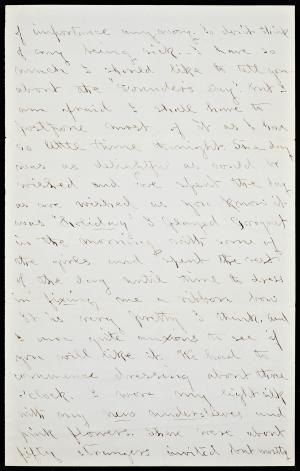 of importance any way. So don't think
of my being sick. I have so
much I should like to tell you
about the "Founders Day" but I
am afraid I shall have to
postpone most of it as I have
so little time tonight. The day
was as delightful as could be
wished and we spent the day
as we wished as you know it
was "Holiday" I played Croquet
in the morning with some of
the girls and spent the rest
of the day until time to dress
in fixing me a ribbon bow
It is very pretty I think and
I am quite anxious to see if
you will like it. We had to
commence dressing about three
o'clock. I wore my light silk
with my new undersleeves and
pink flowers. There were about
fifty strangers invited but mostly